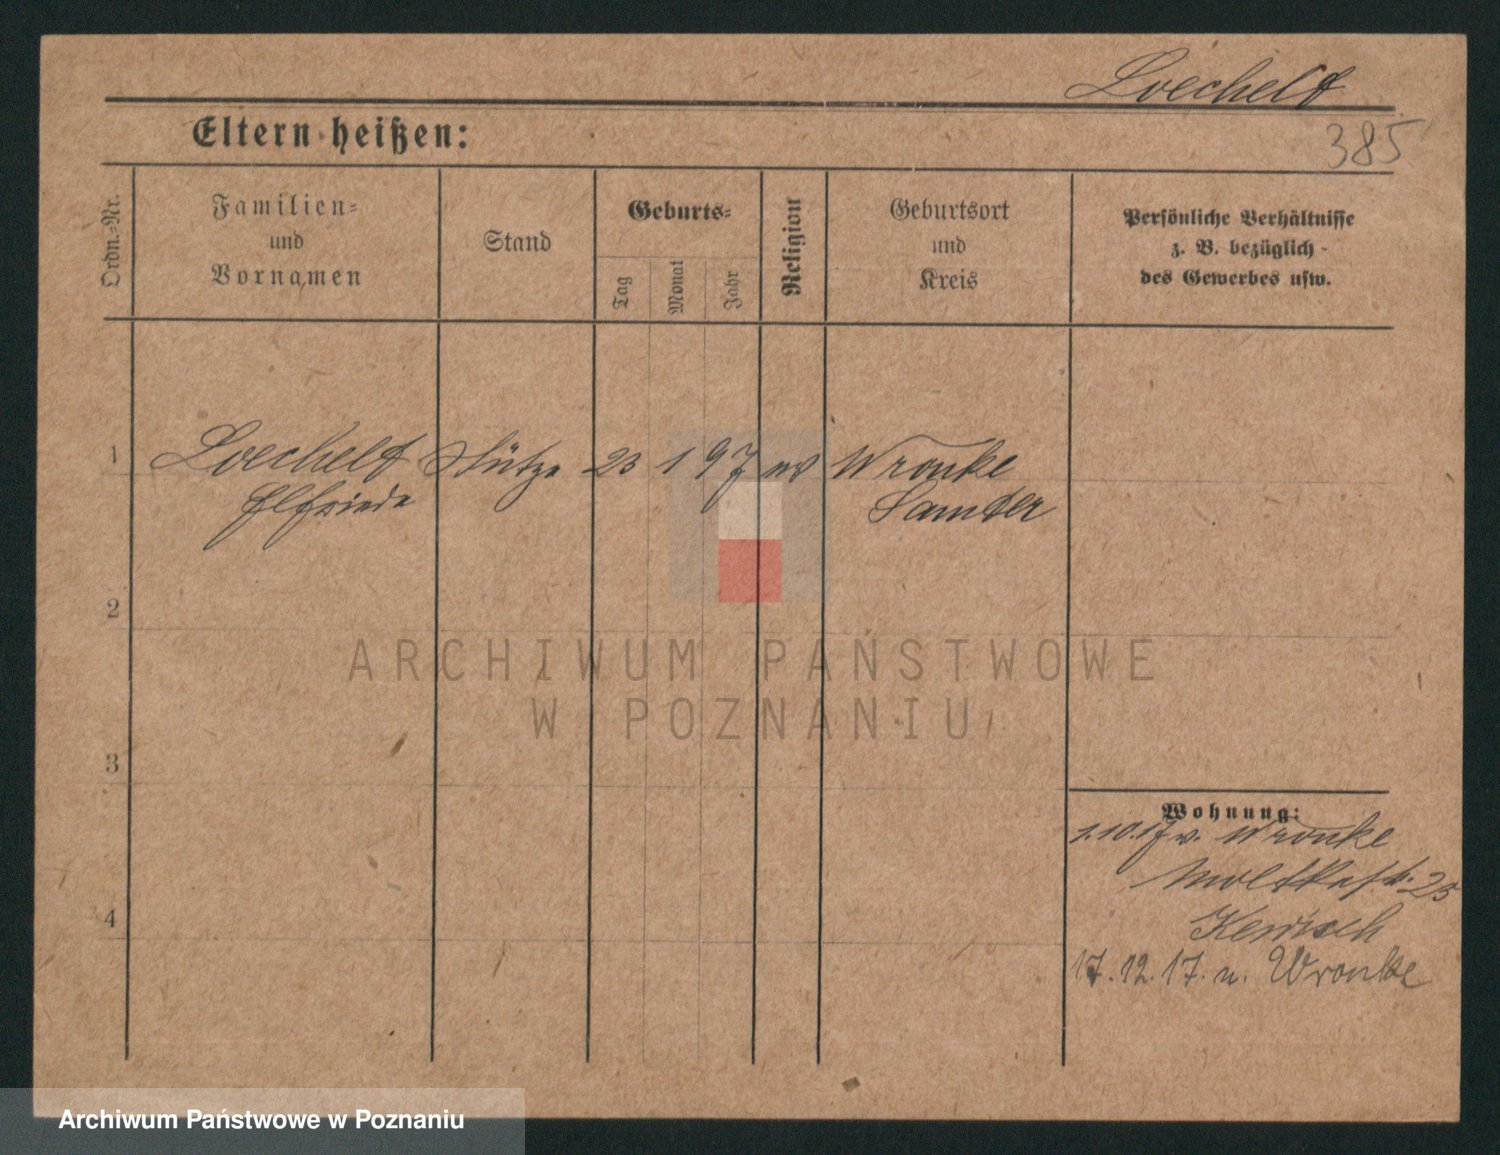 Loechelt
Eltern heißen:
385
Ordn.-Nr.
Familien-
und
Vornamen
Stand
Geburts-
Tag
Monat
Jahr
Religion
Geburtsort
und
Kreis
Persönliche Verhältnisse
z. B. bezüglich
des Gewerbes usw.
1 Loechelt Stütze 23 1 97 Wronke
Elfriede Samter
2
ARCHIWUM PAŃSTWOWE
W POZNANIU
3
Wohnung:
1.10.17 v. Wronke
Moltkestr. 25
4
17.12.17. n. Wronke
Archiwum Państwowe w Poznaniu